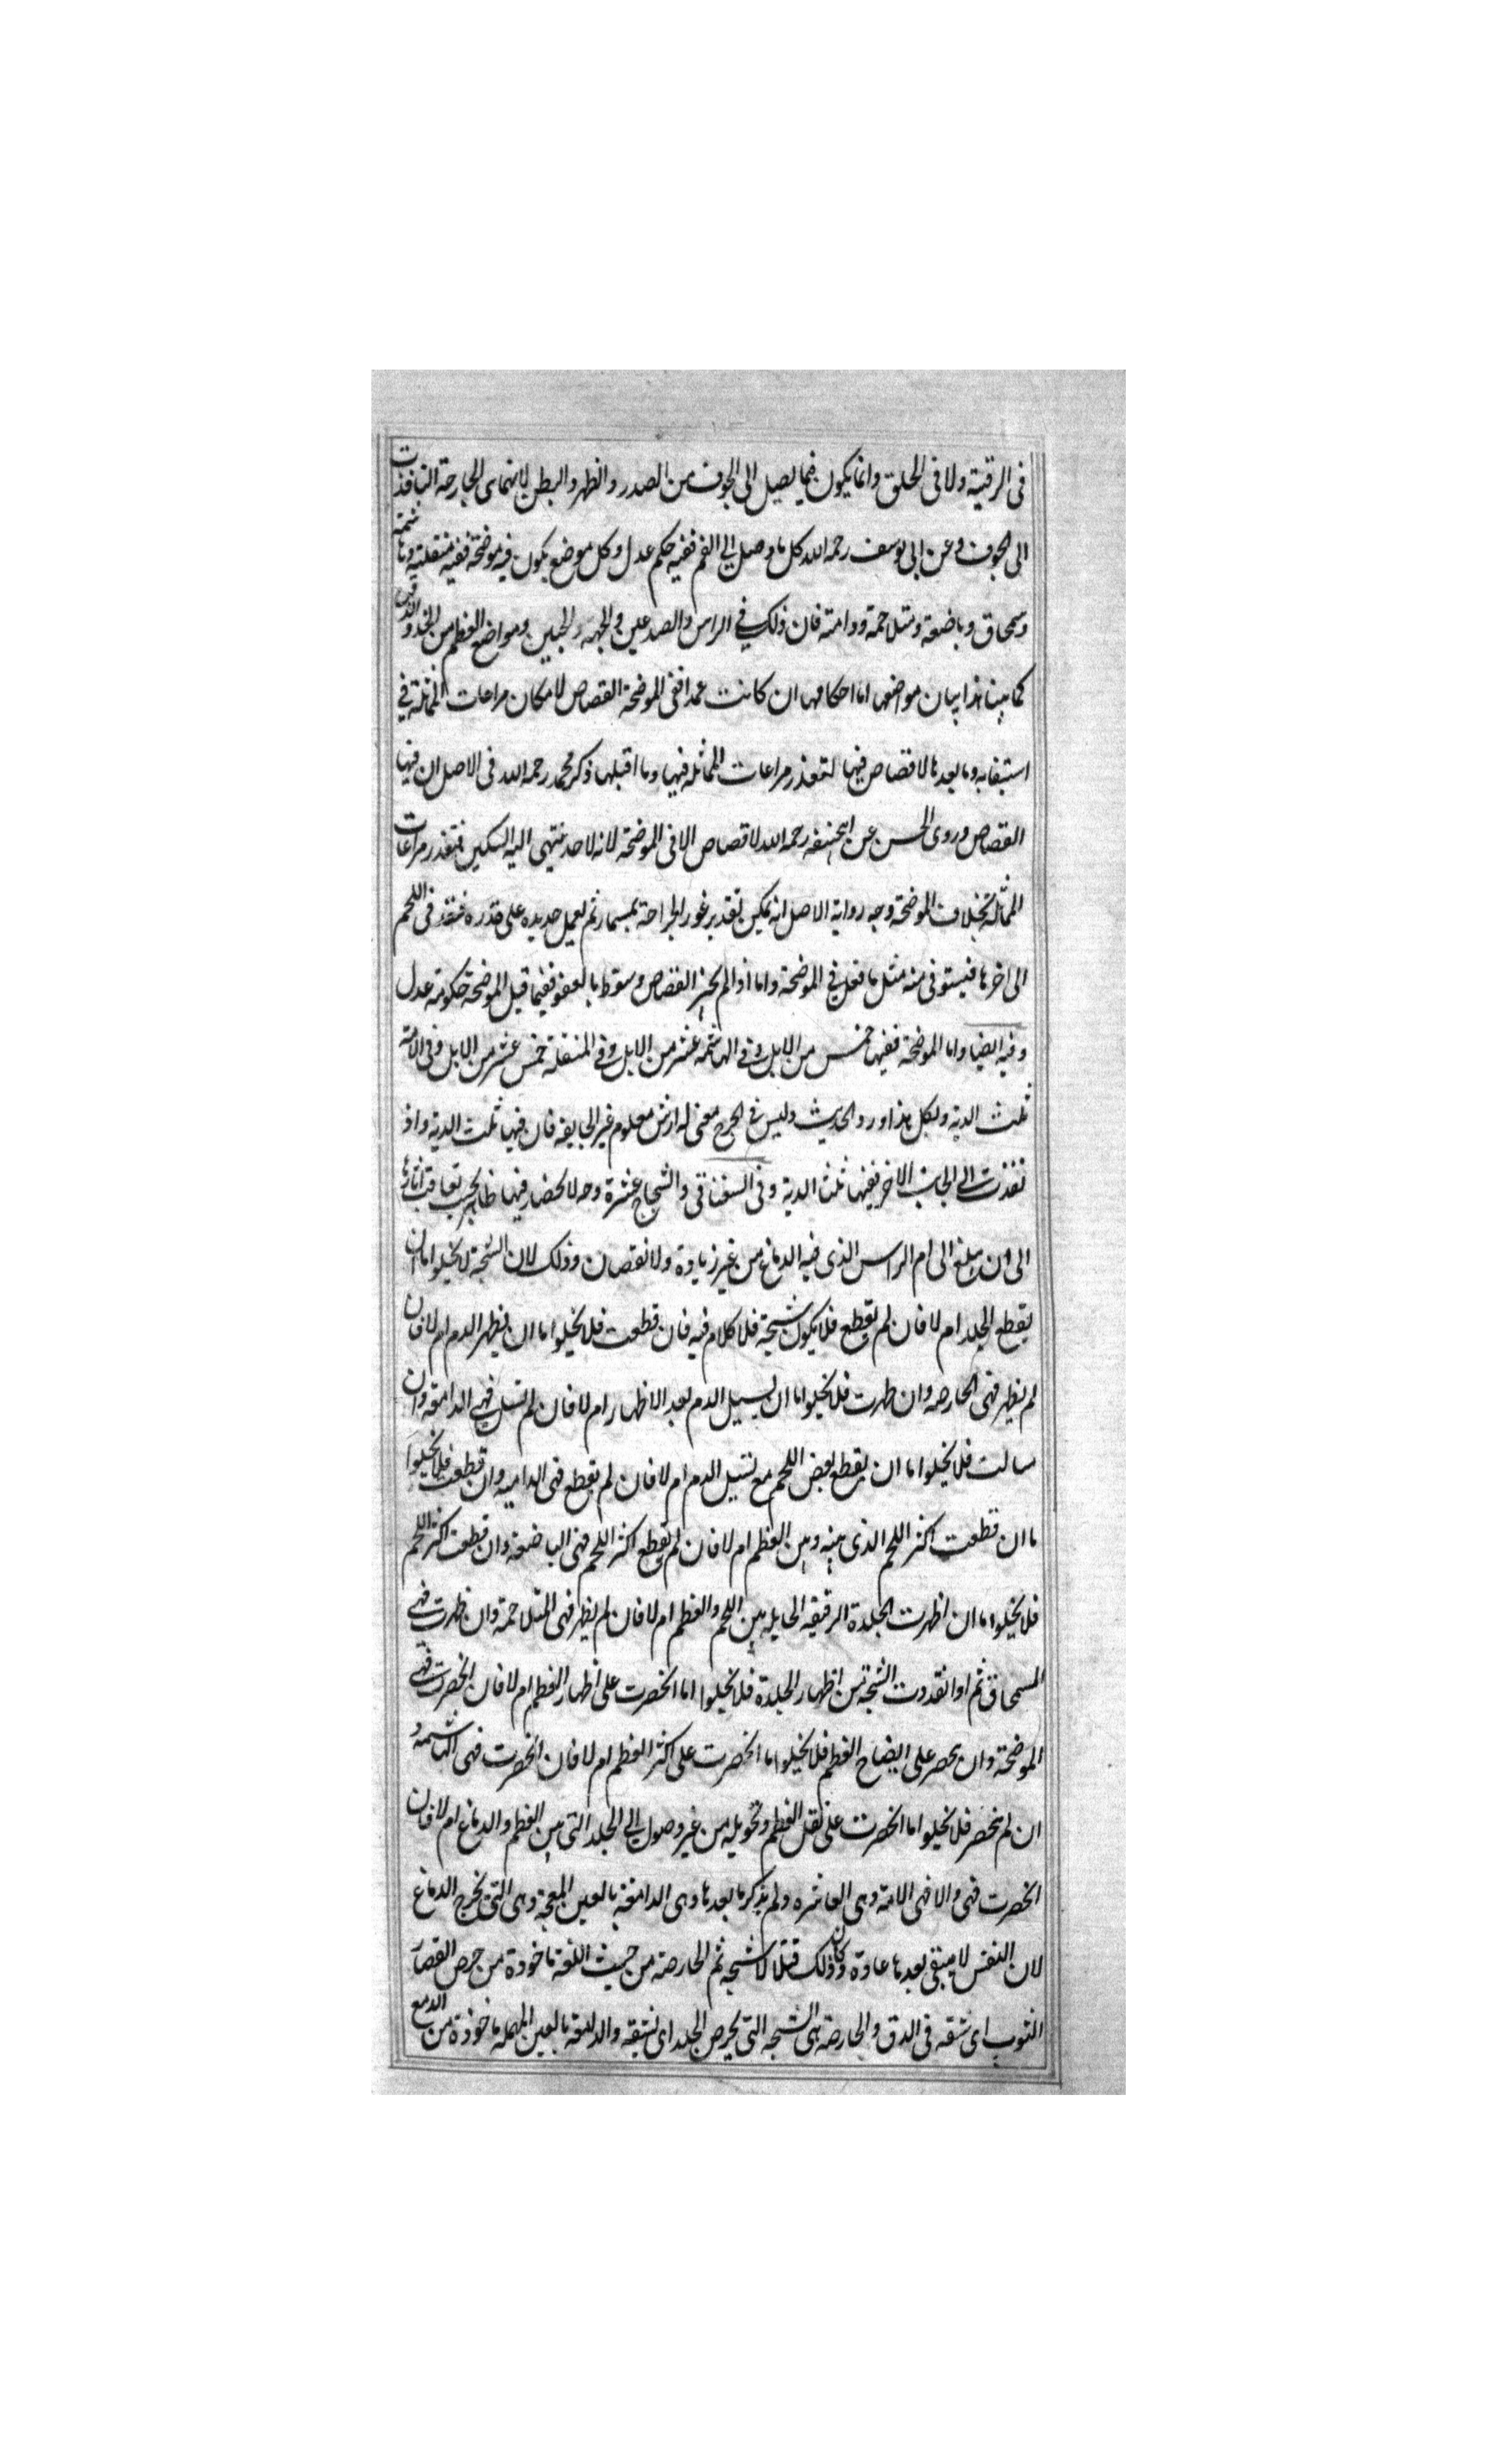 فى الرقبة ولا فى الحلق وانما يكون فيما يصل الى الجوف من الصدر والظهر والبطن لانهما هى الجارحة النافذت
الى الجوف وعن ابى يوسف رحمه الله كل ما وصل الى الفم ففيه حكم عدل وكل موضع يكون فيه موضحة ففيه منقلة وهاشمة
وسمحاق وباضعة ومتلاحمة ودامتة فان ذلك فى الراس والصدعين والجبهه والجبين ومواضع العظم من الخد والذقن
كما بينا هذا بيان مواضعها اما احكامها ان كانت عمدا ففى الموضحة القصاص لامكان مراعات المماثلة فى
استيفابه وما بعدها لا قصاص فيها لتعذر مراعات المماثله فيها وما قبلها ذكر محمد رحمه الله فى الاصل ان فيها
القصاص وروى الحسن عن ابى حنيفه رحمه الله لا قصاص الا فى الموضحة لانه لا حد ينتهى اليه السكين فتعذر مراعات
المماثلة بخلاف الموضحة وجه رواية الاصل انه يمكن تقدير غور الجراحة بمسمار ثم يعمل حديده على قدره فينفذ فى اللحم
الى اخرها فيستوفى منه مثل ما فعل فى الموضحة واما اذا لم يجز القصاص وسقوط بالعفو ففيما قبل الموضحة حكومة عدل
وفيه ايضا واما الموضحة ففيها خمس من الابل وفى الهاشمه عشر من الابل وفى المنقلة خمس عشر من الابل وفى الامة
ثلث الدية ولكل هذا ورد الحديث وليس فى الجرح معنى له ارش معلوم غير الجايفه فان فيها ثلث الدية واذ
نفذت الى الجانب الاخر ففيها ثلثا الدية وفى السغناقى والشجاج عشرة وجه الانحصار فيها ظاهر بحسب تعاقب اثارها
الى ان يبلغ الى ام الراس الذى فيه الدماغ من غير زيادة ولا نقصان وذلك لان الشجة لا يخلوا اما ان
يقطع الجلد ام لا فان لم يقطع فلا يكون شجة فلا كلام فيه فان قطعت فلا يخلوا اما ان يظهر الدم ام لا فان
لم يظهر فهى الحارصه وان ظهرت فلا يخلوا اما ان يسيل الدم بعد الاظهار ام لا فان لم تسل فهى الدامعة وان
سالت فلا يخلوا اما ان يقطع بعض اللحم مع تسيل الدم ام لا فان لم يقطع فهى الداميه وان قطعت فلا يخلوا
ما ان قطعت اكثر اللحم الذى بينه وبين العظم ام لا فان لم يقطع اكثر اللحم فهى الباضعة وان قطعت اكثر اللحم
فلا يخلوا اما ان اظهرت الجلدة الرقيقه الحايله بين اللحم والعظم ام لا فان لم يظهر فهى المتلاحمة وان ظهرت فهى
السمحاق ثم اذا تعددت الشجة من اظهار الجلدة فلا يخلوا اما انحصرت على اظهار العظم ام لا فان انحصرت فهى
الموضحة وان يحصر على ايضاح العظم فلا يخلوا اما انحصرت على اكثر العظم ام لا فان انحصرت فهى الهاشمه و
ان لم ينحصر فلا يخلوا اما انحصرت على نقل العظم وتحويله من غير وصول الى الجلد التى بين العظم والدماغ ام لا فان
انحصرت فهى والا فهى الامة وهى العاشره ولم يذكر ما بعدها وهى الدامغة بالغين المعجمة وهى التى يخرج الدماغ
لان النفس لا يبقى بعدها عادة وكان ذلك قتلا لا شجه ثم الحارصة من حيث اللغة ماخودة من حرص القصار
الثوب اى شقه فى الدق والحارصة هى الشجه التى يحرص الجلد اى تشقه والدامعة بالعين المهمله ماخوذة من الدمع